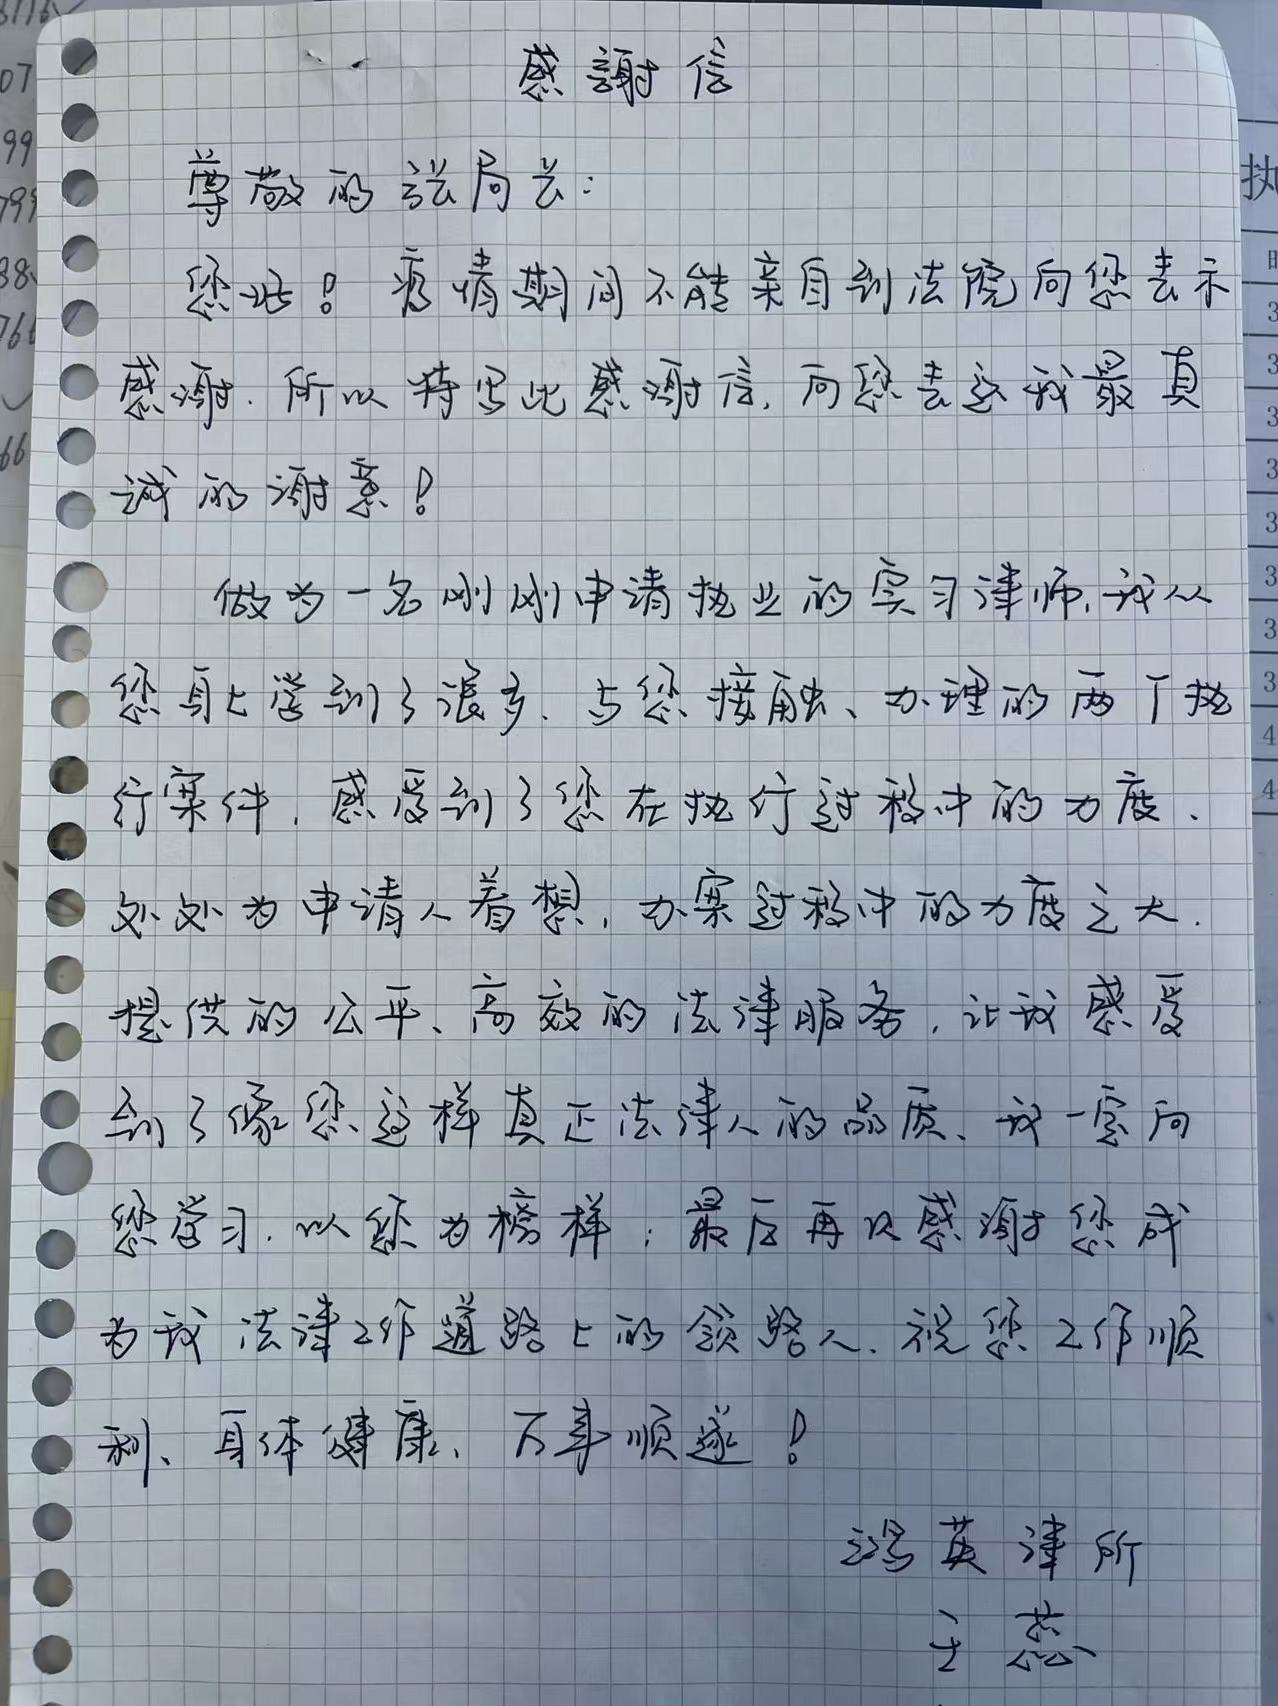 感謝信
尊敬的法局长：
您好！疫情期间不能亲自到法院向您表示
感谢.所以特写此感谢信,向您表达我最真
诚的谢意！
做为一名刚刚申请执业的实习律师,我从
您身上学到了很多.与您接触、办理的两个执
行案件,感受到了您在执行过程中的力度、
处处为申请人着想,办案过程中的力度之大.
提供的公平、高效的法律服务,让我感受
到了像您这样真正法律人的品质、我一定向
您学习.以您为榜样；最后再次感谢您成
为我法律工作道路上的领路人.祝您工作顺
利、身体健康、万事顺遂！
鸿英律所
王蕊
执